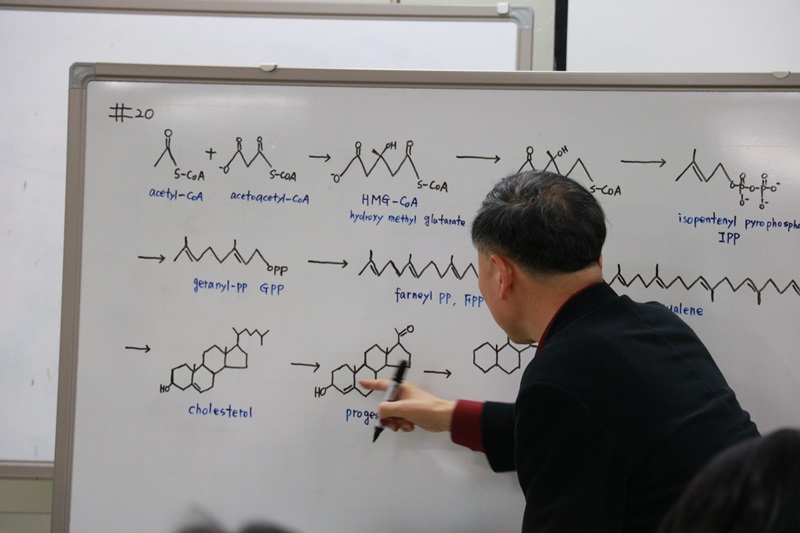 #20
acetyl-CoA
acetoacetyl-CoA
HMG-CoA
hydroxy methyl glutarate
isopentenyl pyrophospha
IPP
geranyl-PP GPP
farneyl PP, FPP
alene
cholesterol
proge
O
S-CoA
+
O
O
O
S-CoA
O
OH
O
O
S-CoA
O
OH
S-CoA
O-P-O-P-O-
OPP
HO
O
HO